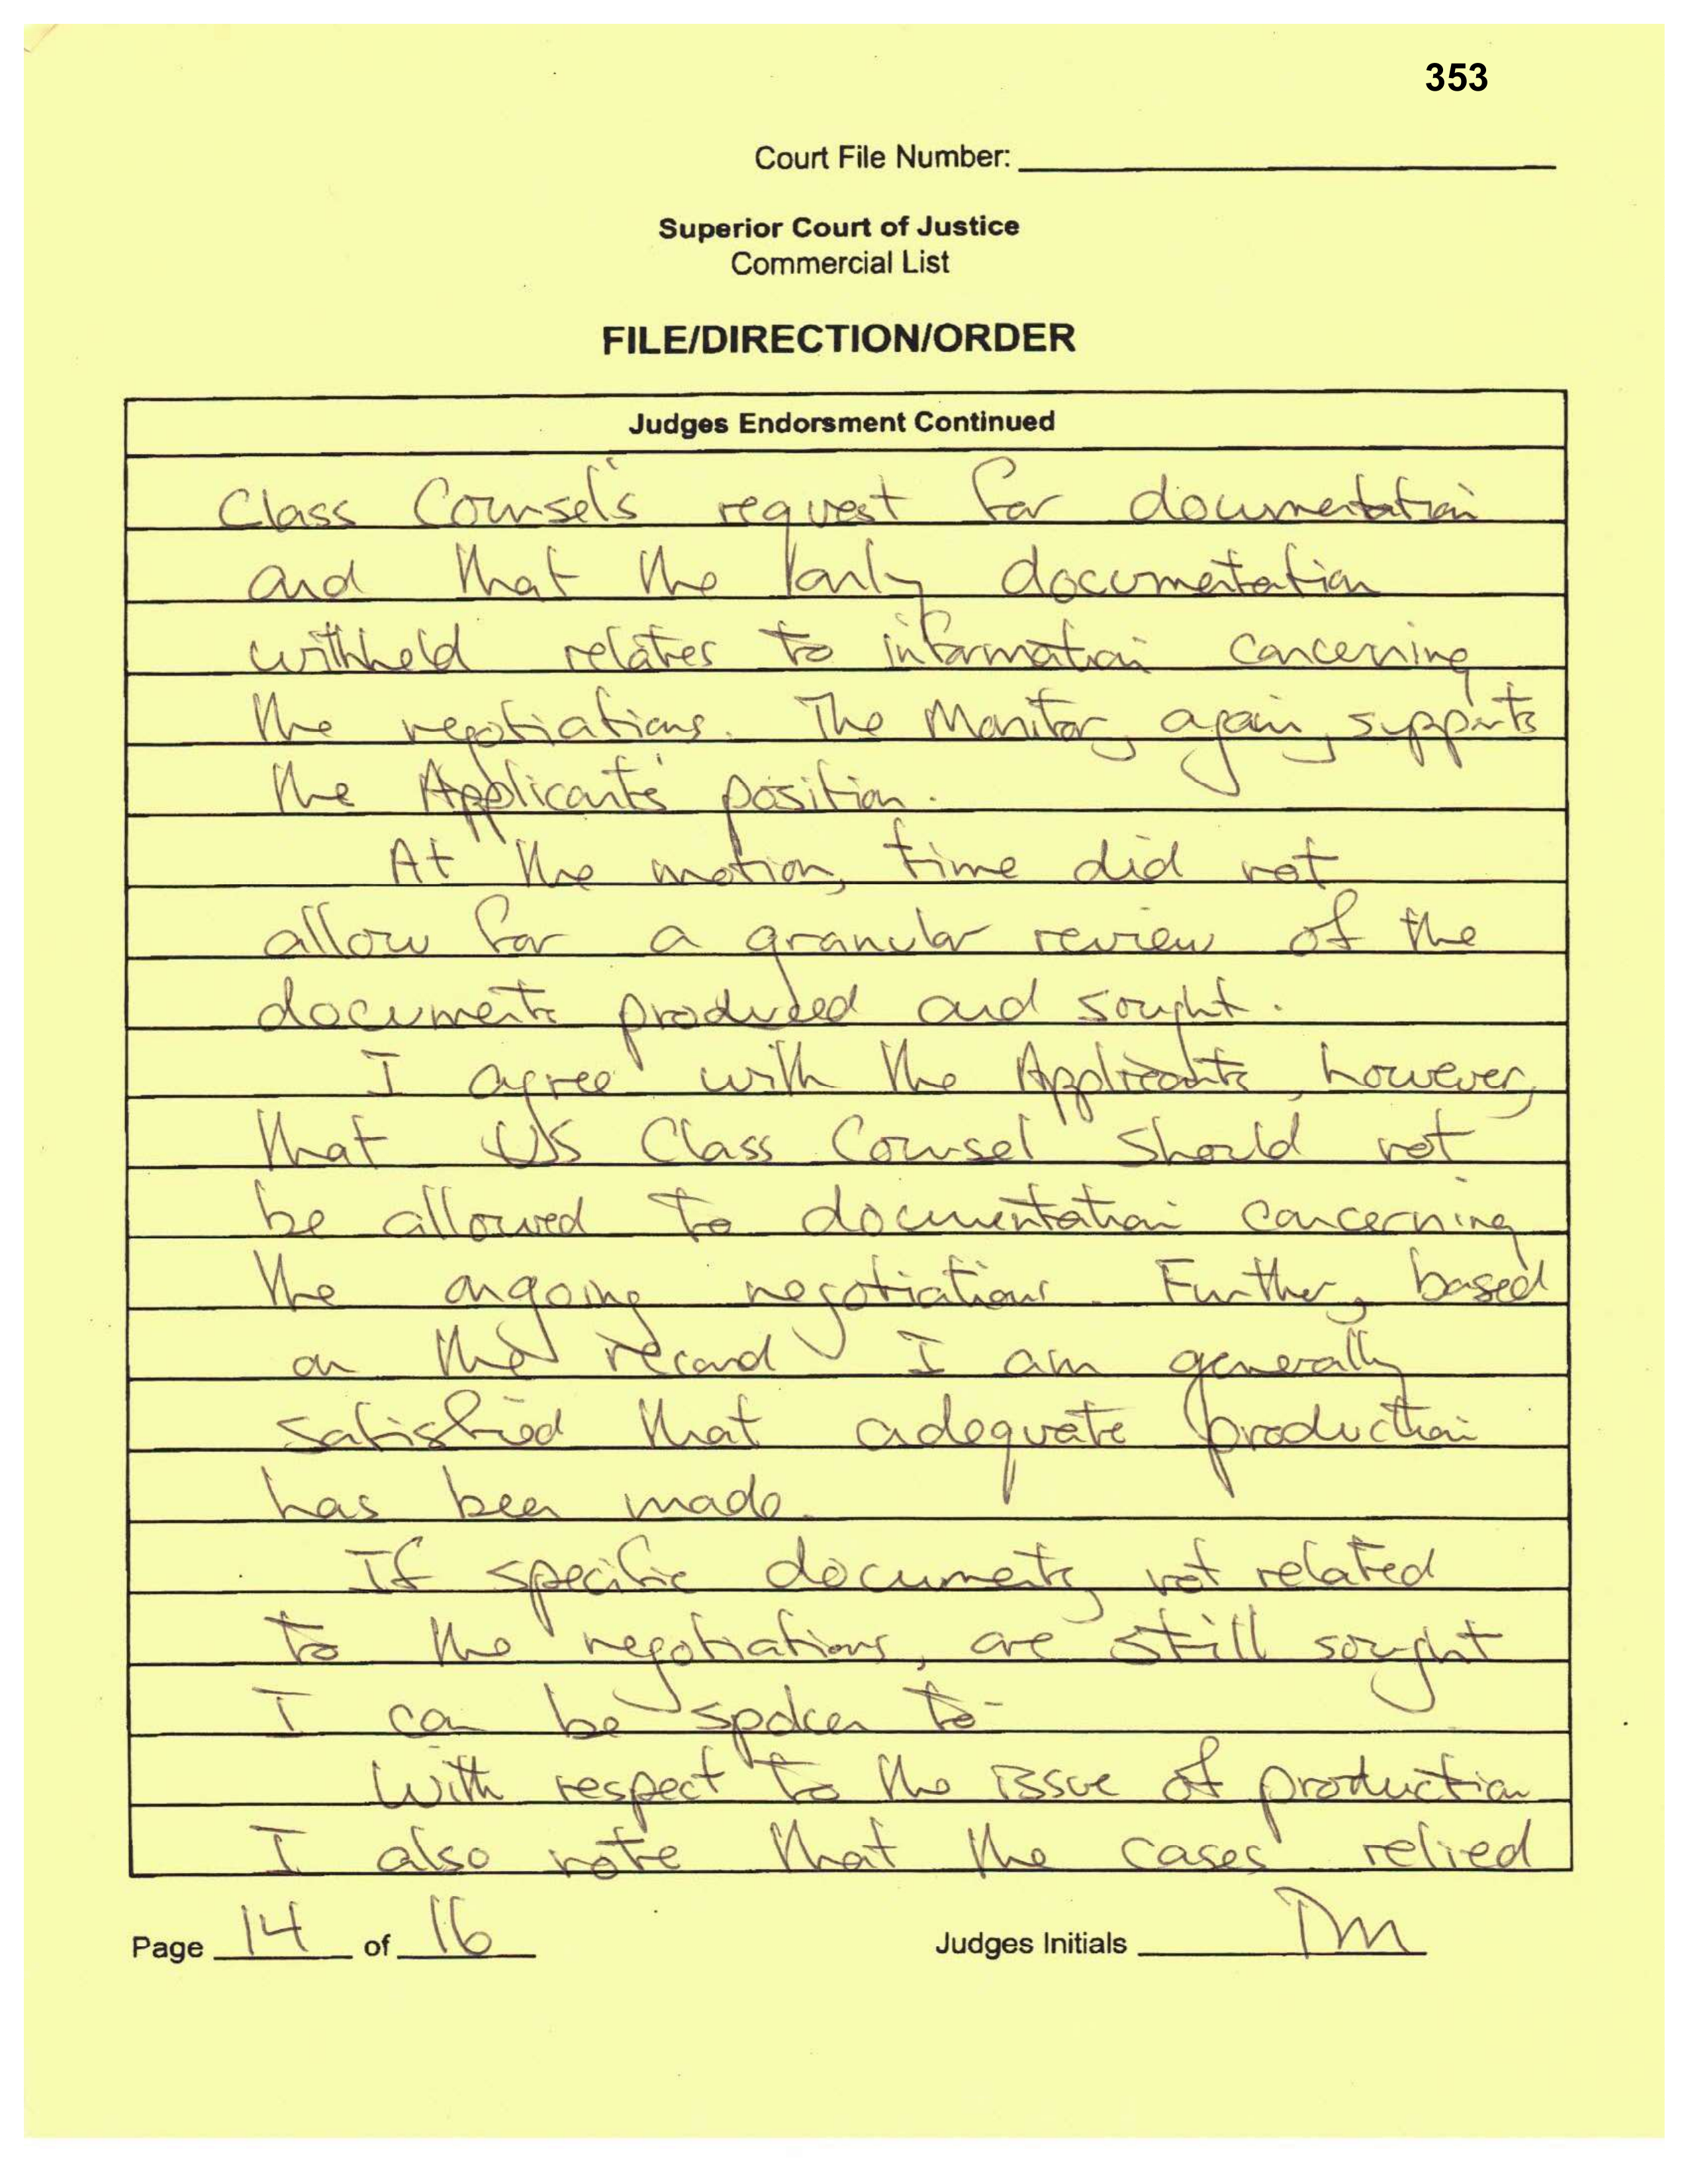 353
Court File Number:
Superior Court of Justice
Commercial List
FILE/DIRECTION/ORDER
Judges Endorsment Continued
Class Counsel's request for documentation
and that the only documentation
withheld relates to information concerning
the negotiations. The Monitor, again, supports
the Applicants' position.
At the motion, time did not
allow for a granular review of the
documents produced and sought.
I agree with the Applicants, however,
that US Class Counsel should not
be allowed to documentation concerning
the ongoing negotiations. Further, based
on the record I am generally
satisfied that adequate production
has been made.
If specific documents, not related
to the negotiations, are still sought
I can be spoken to.
With respect to the issue of production
I also note that the cases relied
Page 14 of 16
Judges Initials TM